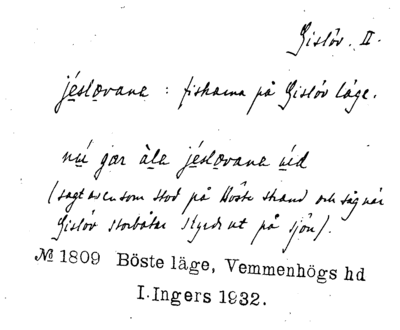 Gislöv. II.
jéslovana : fiskarna på Gislöv läge.
nú gær àle jéslovana úd
(sagt av en som stod på Böste strand och såg när
Gislöv storbåtar styrde ut på sjön).
№ 1809 Böste läge, Vemmenhögs hd
I. Ingers 1932.